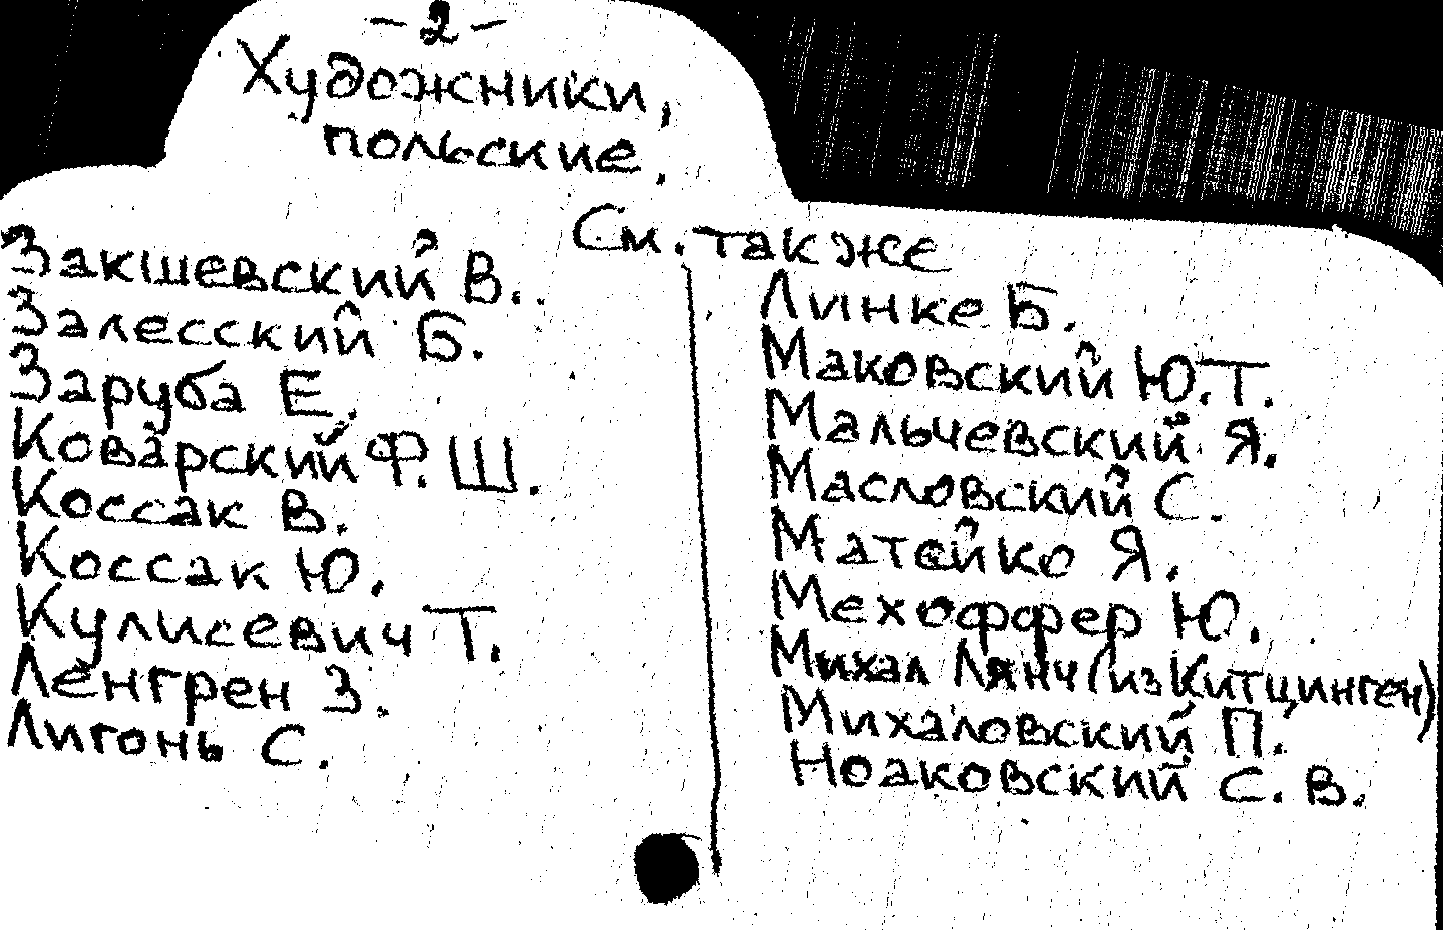 - 2 -
Художники,
польские.
См. также
Закшевский В.
Залесский Б.
Заруба Е.
Коварский Ф. Ш.
Коссак В.
Коссак Ю.
Кулисевич Т.
Ленгрен З.
Лигонь С.
Линке Б.
Маковский Ю. Т.
Мальчевский Я.
Масловский С.
Матейко Я.
Мехоффер Ю.
Михал Лянч (из Китцинген)
Михаловский П.
Ноаковский С. В.